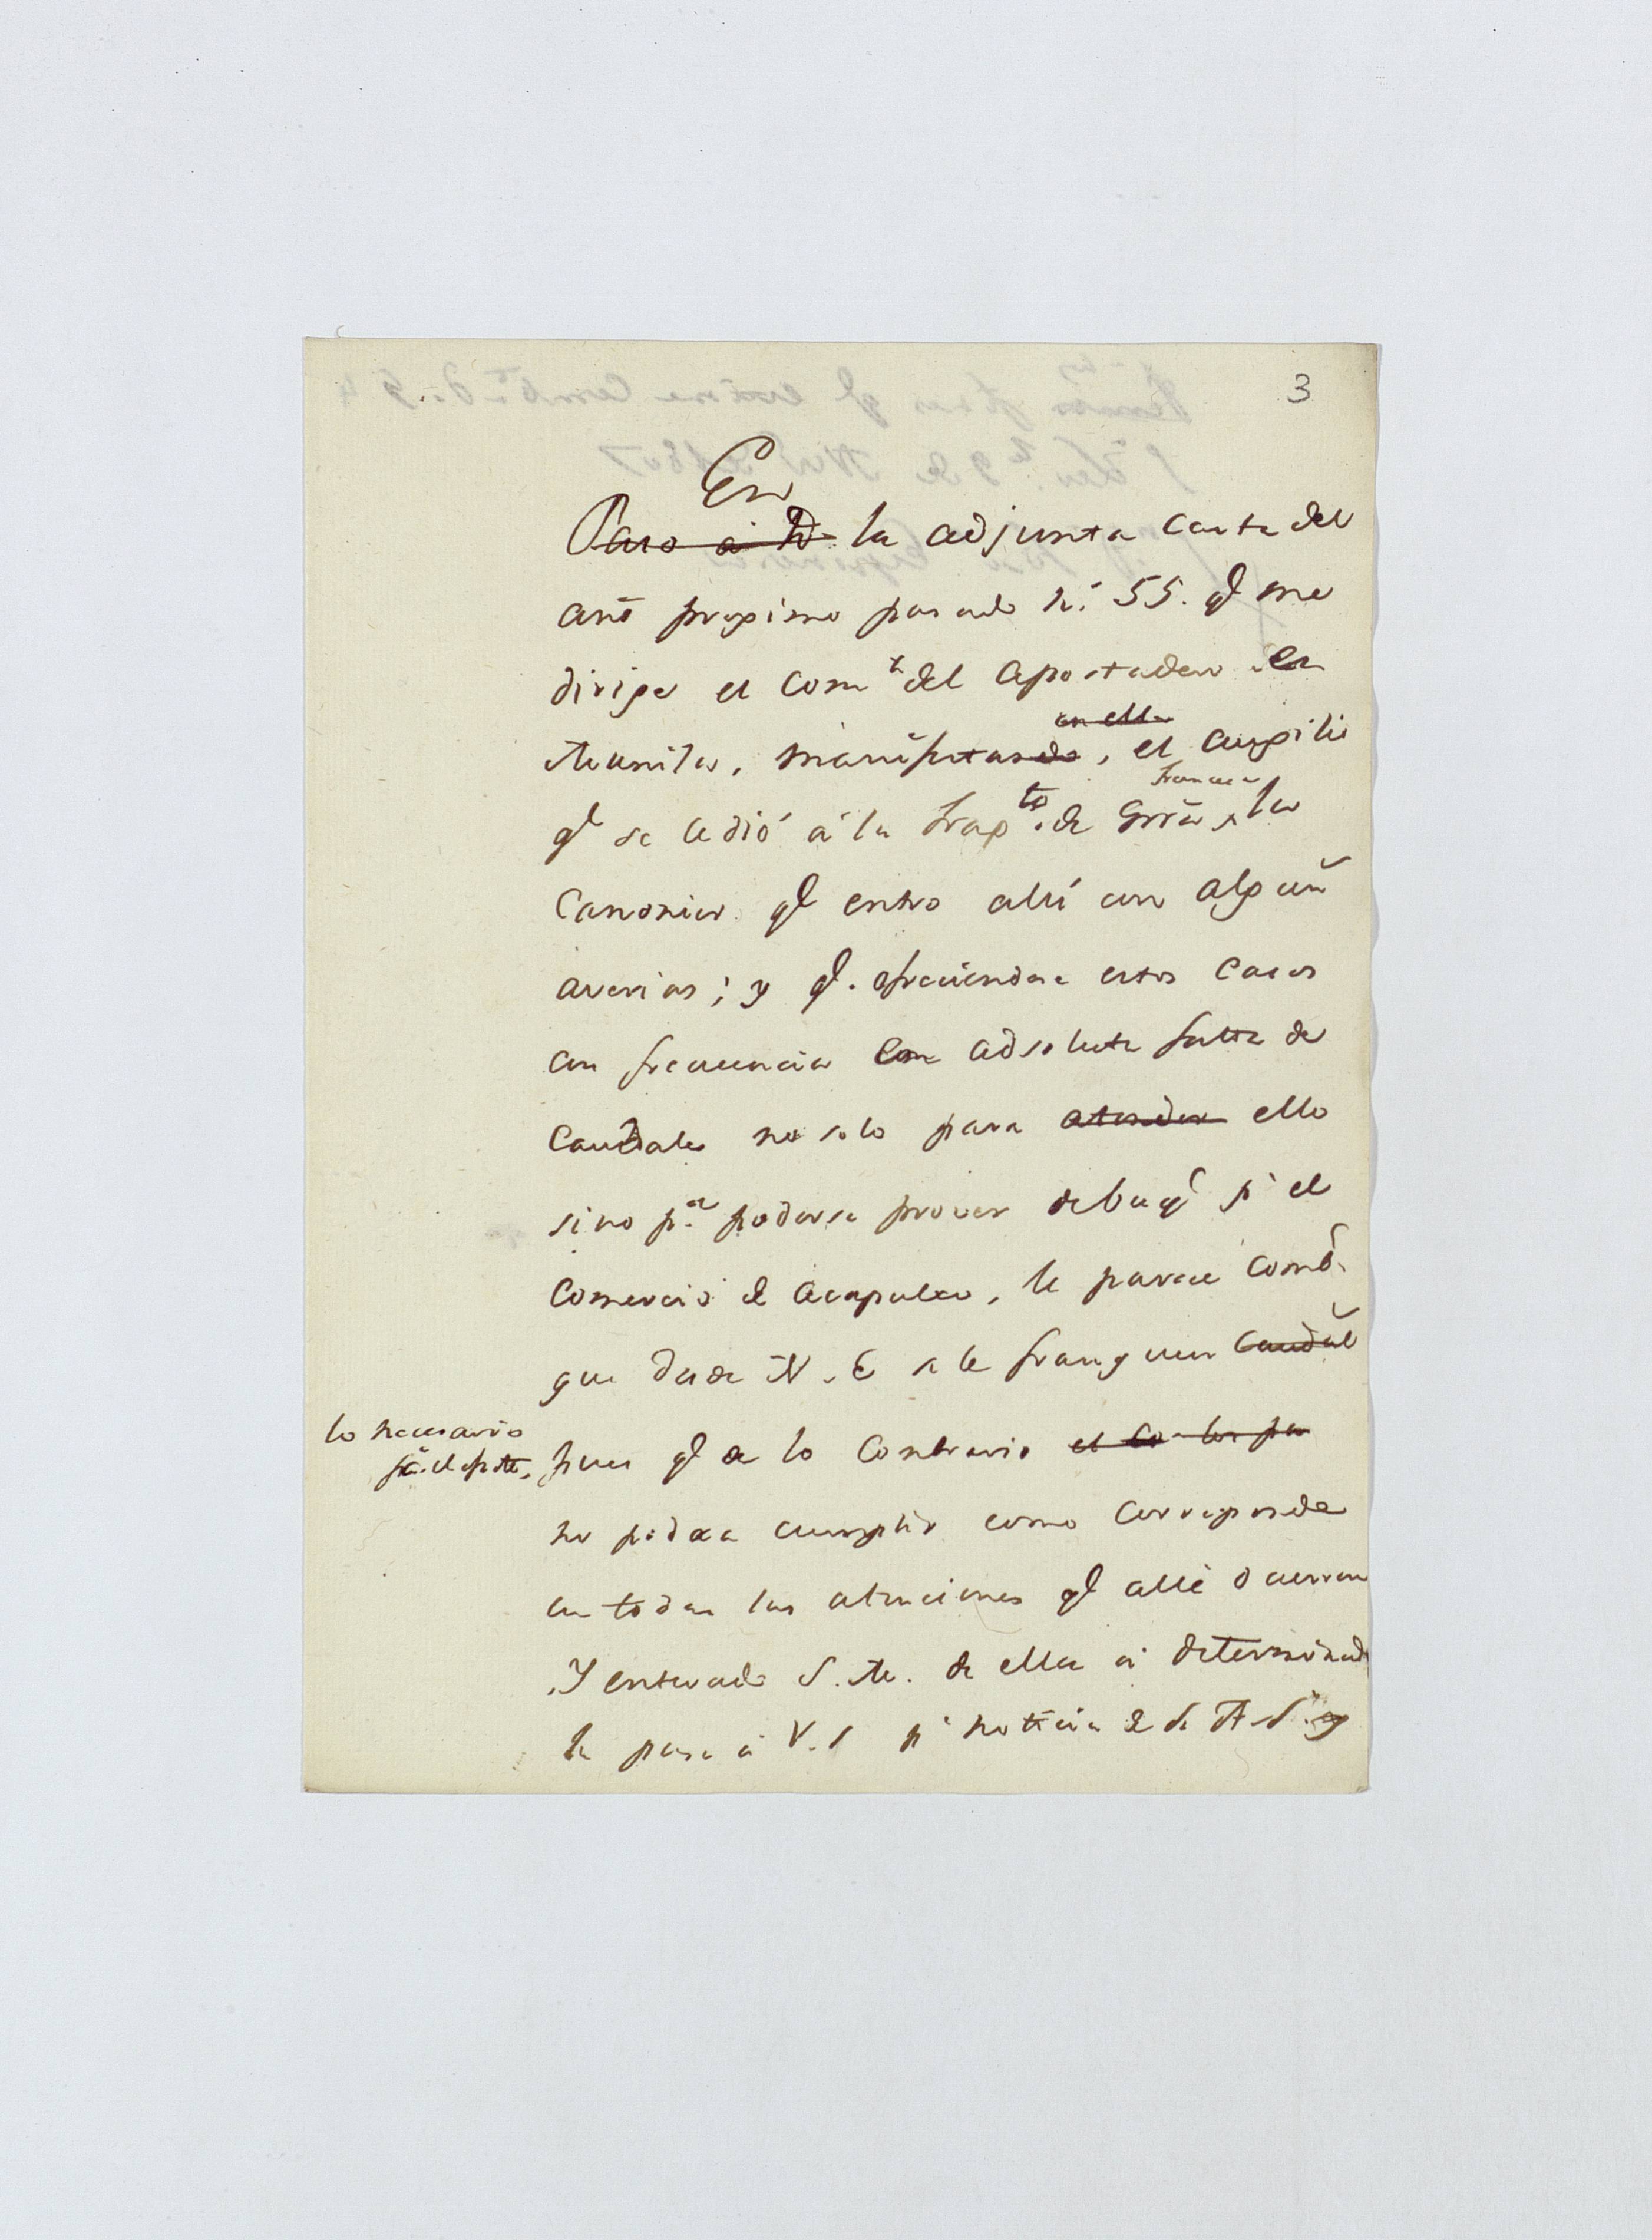 3
En
Paso a V la adjunta Carta del
año proximo pasado n.º 55. q.e me
dirige el Com.te del Apostadero de
Manila, manifestando, el auxilio
en ella
q.e se le dió á la frag.ta de Grra, la
francesa
Canonier q.e entro allí con algun
averias; y q.e ofreciendose estos Casos
con frecuencia con absoluta falta de
Caudales no solo para atender ello
sino p.a poderse prover de buq.e p.r el
Comercio de Acapulco, le parece comb.
que desde N. E se le franqueen Caudal
lo necesario
pues q.e de lo Contrario el
no podra cumplir como corresponde
en todas las atenciones q.e alli ocurran
Y enterado S. M. de ella á determinad
la pase á V. S p.r noticia